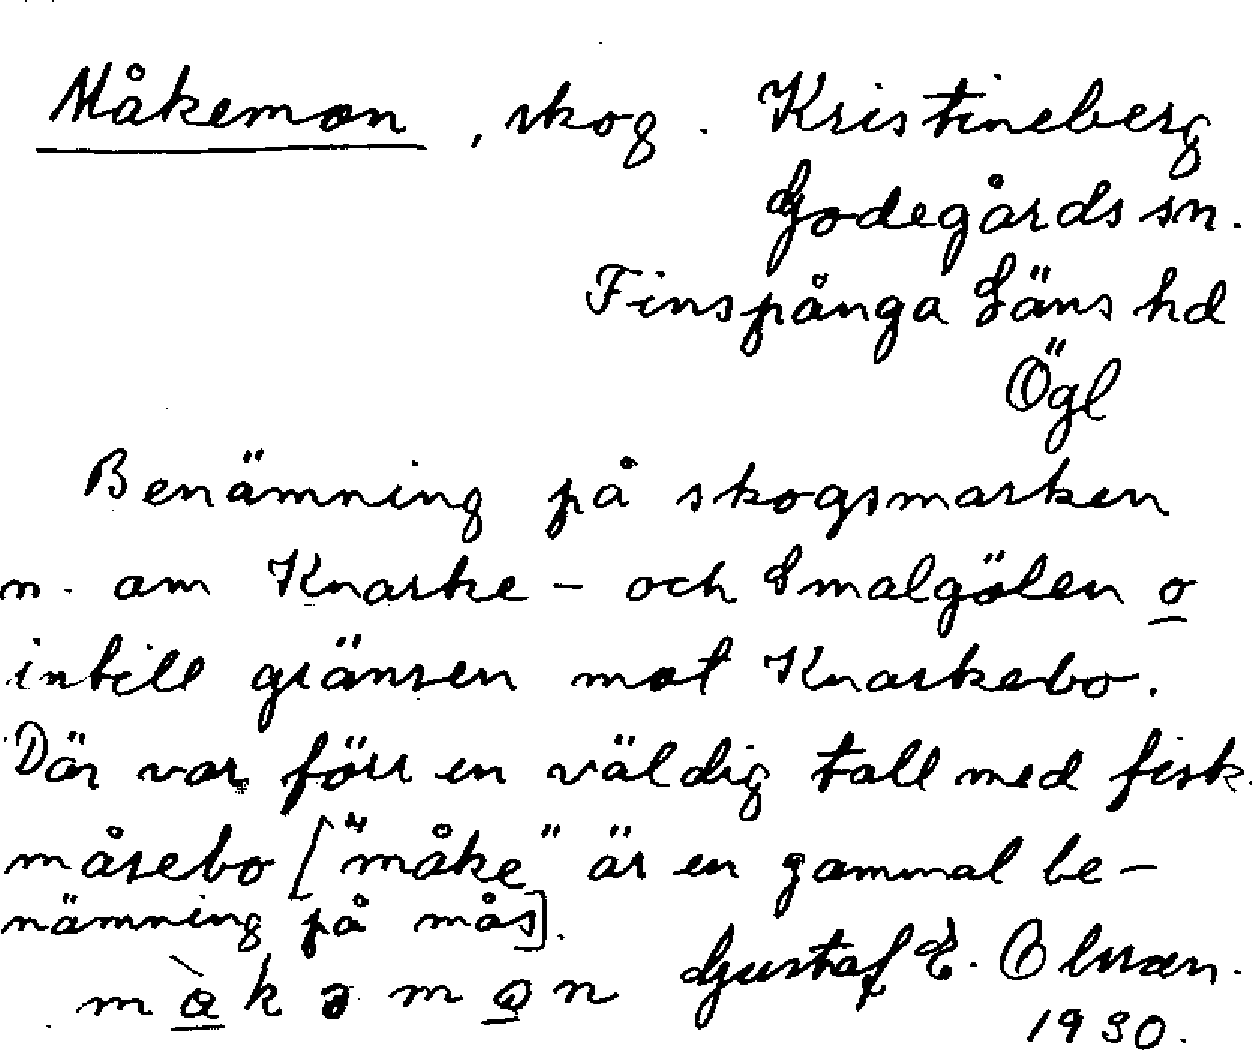 Måkemon, skog. Kristineberg
Godegårds sn.
Finspånga Läns hd
Ögl
Benämning på skogsmarken
n. om Knarke- och Smalgölen o
intill gränsen mot Knarkebo.
Där var förr en väldig tall med fisk-
måsebo ["måke" är en gammal be-
nämning på mås].
Gustaf E. Olsson.
måkəmon
1930.